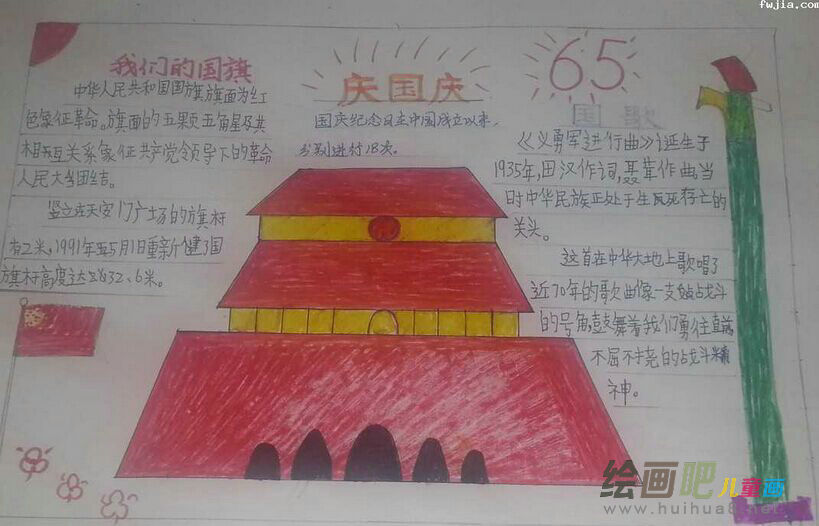 fwjia.com
我们的国旗
中华人民共和国国旗旗面为红
色象征革命。旗面的五颗五角星及其
相互关系象征共产党领导下的革命
人民大团结。
竖立在天安门广场的旗杆
1991年5月1日重新
旗杆高度达32.6米。
庆国庆
国庆纪念日在中国成立以来,
分别进行18次。
65
国歌
《义勇军进行曲》诞生于
1935年,田汉作词,聂耳作曲,当
时中华民族正处于生死存亡的
关头。
这首在中华大地上歌唱了
近70年的歌曲像一支战斗
的号角,鼓舞着我们勇往直前
不屈不挠的战斗精
神。
绘画吧儿童画
www.huihua8.net